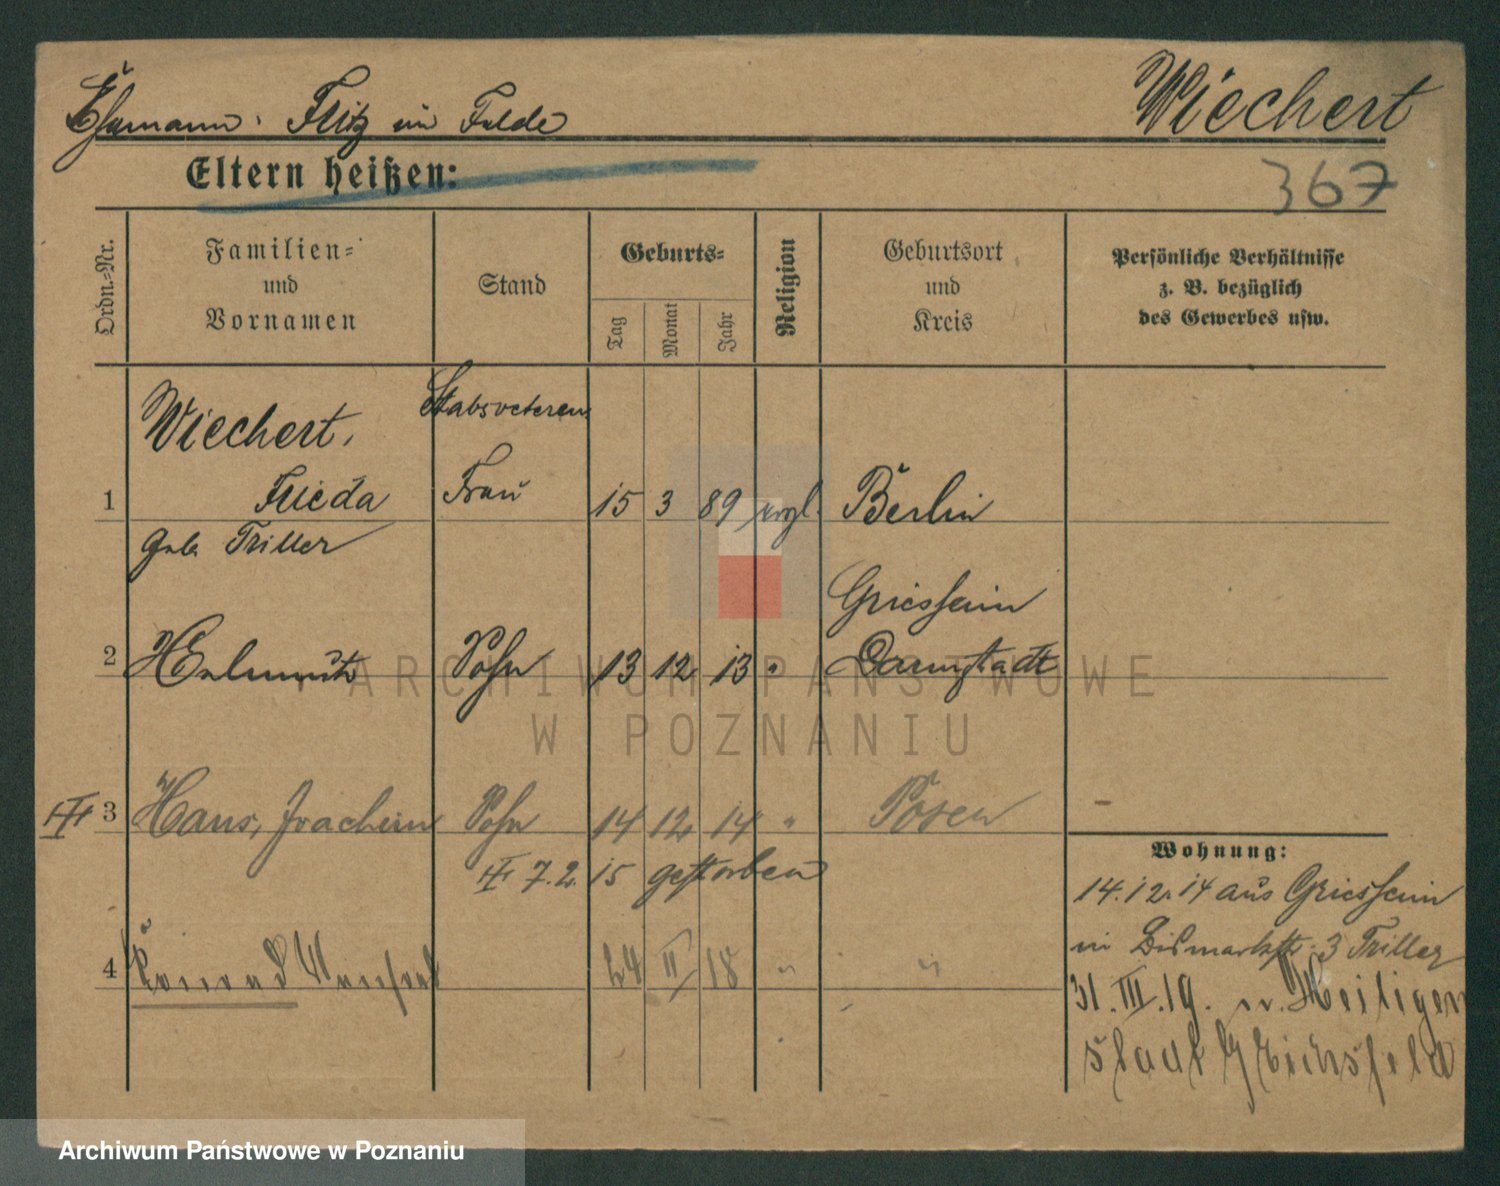 Ehemann: Fritz im Felde
Wiechert
Eltern heißen:
367
Ordn.-Nr.
Familien-
und
Vornamen
Stand
Geburts-
Tag
Monat
Jahr
Religion
Geburtsort
und
Kreis
Persönliche Verhältnisse
z. B. bezüglich
des Gewerbes usw.
Wiechert, Stabsveterin.
1 Frieda Frau 15 3 89 evgl. Berlin
geb. Triller
Griesheim
2 Helmuth Sohn 13 12 13 " Darmstadt
3 Hans, Joachim Sohn 14 12 14 " Posen
7.2.15 gestorben
Wohnung:
14.12.14 aus Griesheim
in Bismarckstr. 3 Triller
4 Konrad 24 II 18 " "
31.III.19. n. Heiligen
stadt Eichsfeld
ARCHIWUM PAŃSTWOWE
W POZNANIU
Archiwum Państwowe w Poznaniu